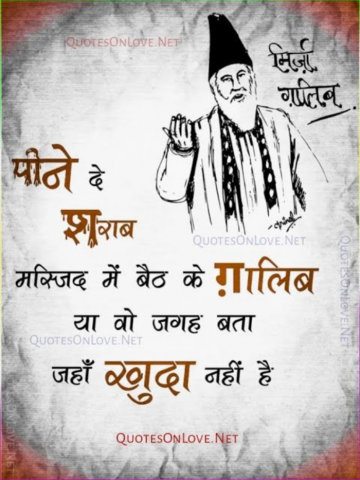 QuotesOnLove.Net
मिर्ज़ा
ग़ालिब
पीने दे
शराब
QuotesOnLove.Net
मस्जिद में बैठ के ग़ालिब
या वो जगह बता
QuotesOnLove.Net
जहाँ खुदा नहीं है
QuotesOnLove.Net
QuotesOnLove.Net